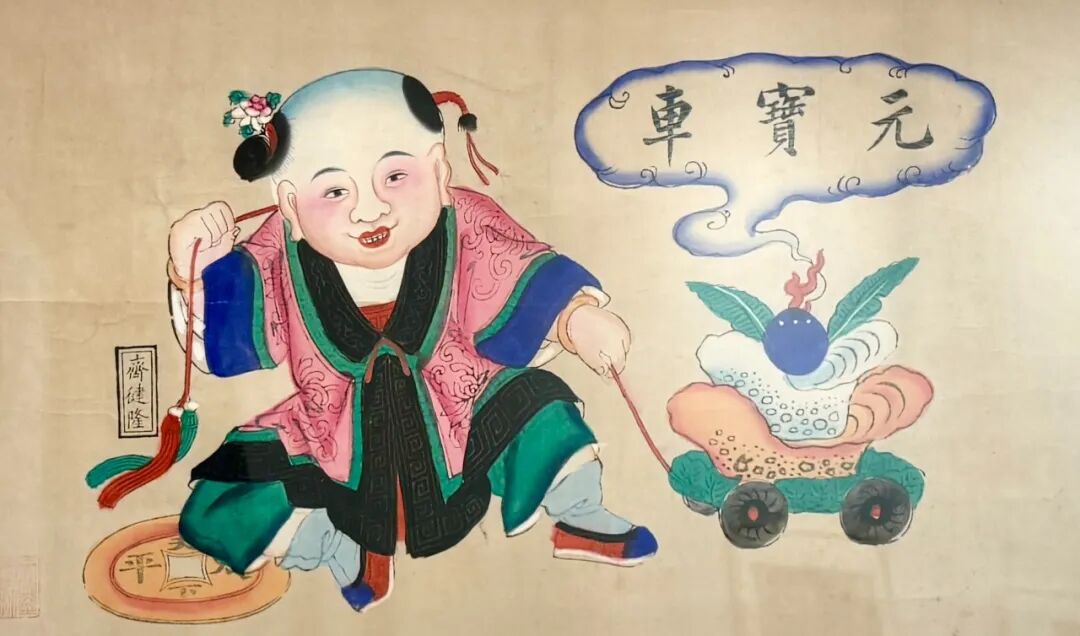 元寶車
齊健隆
平